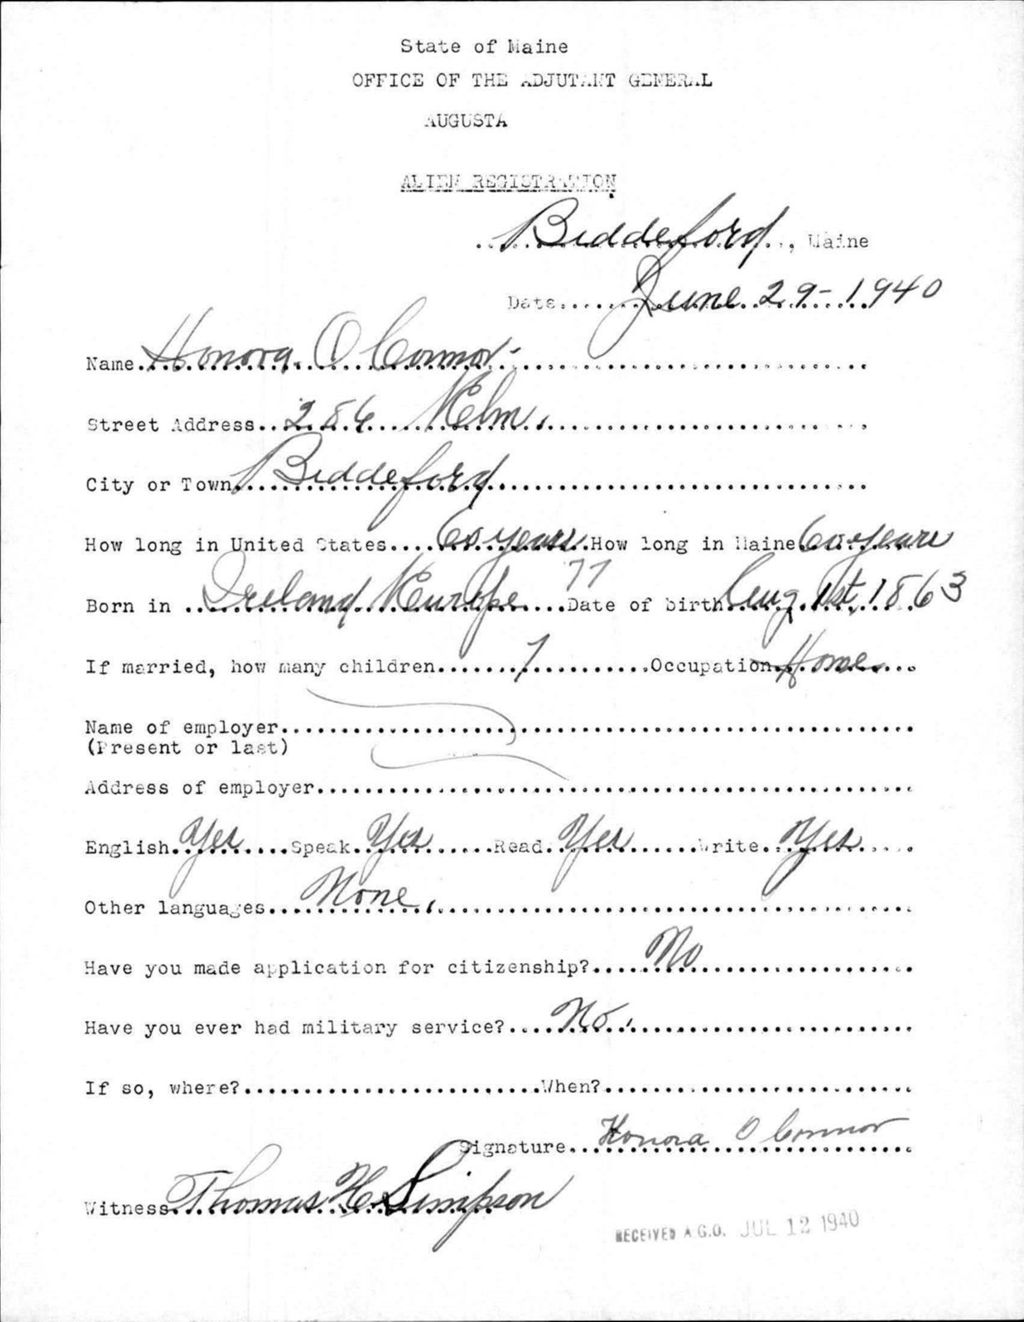 State of Maine
OFFICE OF THE ADJUTANT GENERAL
AUGUSTA
ALIEN REGISTRATION
Biddeford, Maine
Date June 29-1940
Name Honora O Connor
Street Address 286 Elm.
City or Town Biddeford
How long in United States 60 years How long in Maine 60 years
Born in Ireland Europe 77 Date of birth Aug 1st, 1863
If married, how many children 7 Occupation Home
Name of employer
(Present or last)
Address of employer
English Yes Speak Yes Read Yes Write Yes
Other languages None,
Have you made application for citizenship? No
Have you ever had military service? No.
If so, where? When?
Signature Honora O Connor
Witness Thomas H Simpson
RECEIVED A.G.O. JUL 12 1940